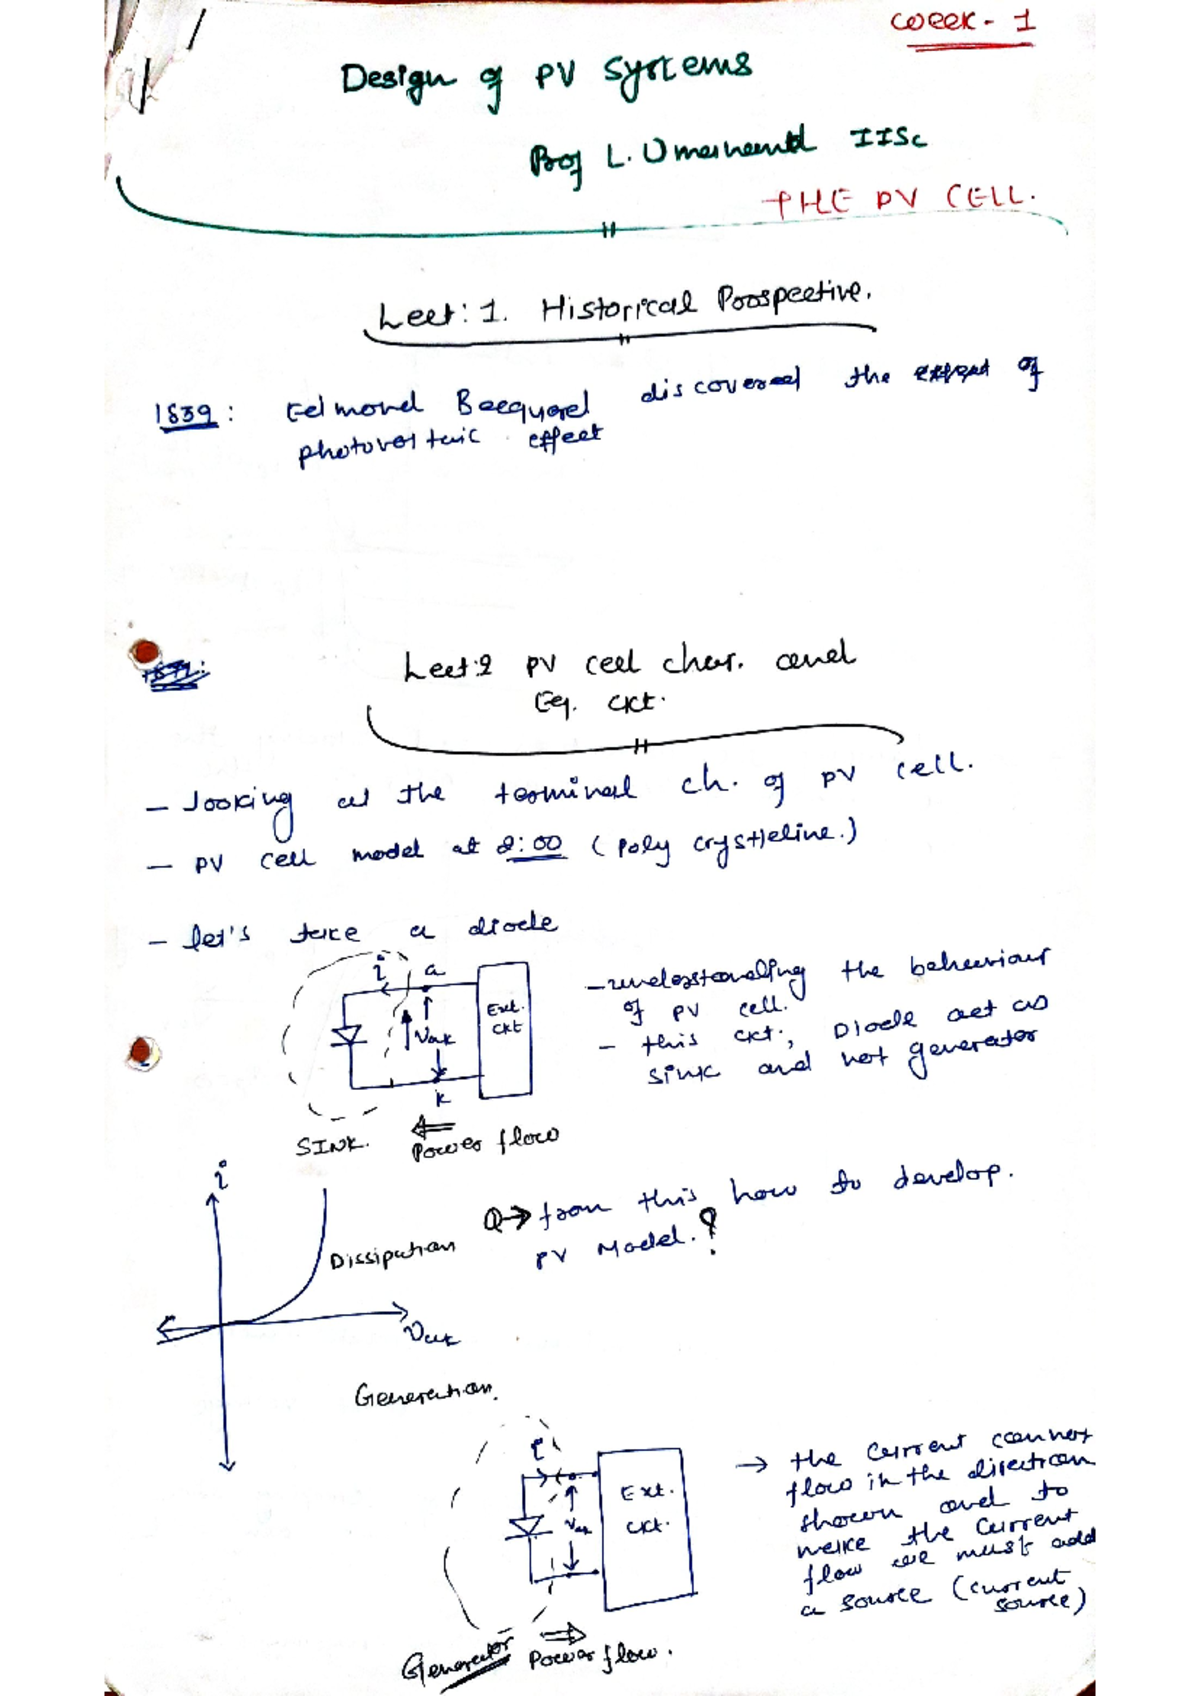 Week - 1
Design of PV Systems
Prof L. Umanand IISc
THE PV CELL.
Lect: 1. Historical Prospective.
1839: Edmond Becquerel discovered the of
photovoltaic effect
Lect:2 PV cell char. and
Eq. ckt.
- looking at the terminal ch. of PV cell.
- PV cell model at 2:00 (Poly crystelline.)
- let's take a diode
i a
Ext.
ckt
Vak
k
SINK.
Power flow
- understanding the behaviour
of PV cell.
- this ckt, Diode act as
sink and not generator
i
Dissipation
Vak
Q→ from this how to develop.
PV Model.?
Generation.
i
Ext.
ckt.
Vak
Generator
Power flow.
→ the current cannot
flow in the direction
shown and to
make the current
flow we must add
a source (current
source)